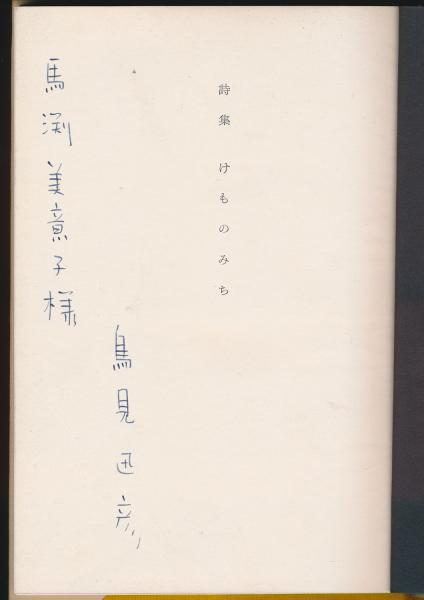 詩集 けものみち
鳥見迅彦
馬渕美意子様